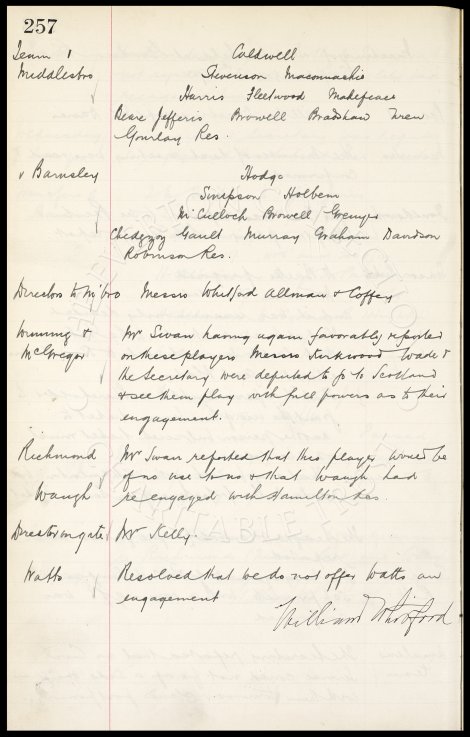 257
Team 1 Caldwell
Middlesbro Stevenson Maconnachie
Harris Fleetwood Makepeace
Beare Jefferis Browell Bradshaw Wren
Gourlay Res.
v Barnsley Hodge
Simpson Holbem
McCulloch Browell Grenyer
Chedgzoy Gault Murray Graham Davidson
Robinson Res.
Directors to M'bro Messrs Whitford Allman & Coffey
&
McGregor Mr Swan having again favorably reported
on these players Messrs Kirkwood Wade &
the Secretary were deputed to go to Scotland
& see them play with full powers as to their
engagement.
Richmond Mr Swan reported that this player would be
of no use to us & that Waugh had
Waugh re engaged with Hamilton Acs.
Director on gate Mr Kelly.
Watts Resolved that we do not offer Watts an
engagement
William Whitford